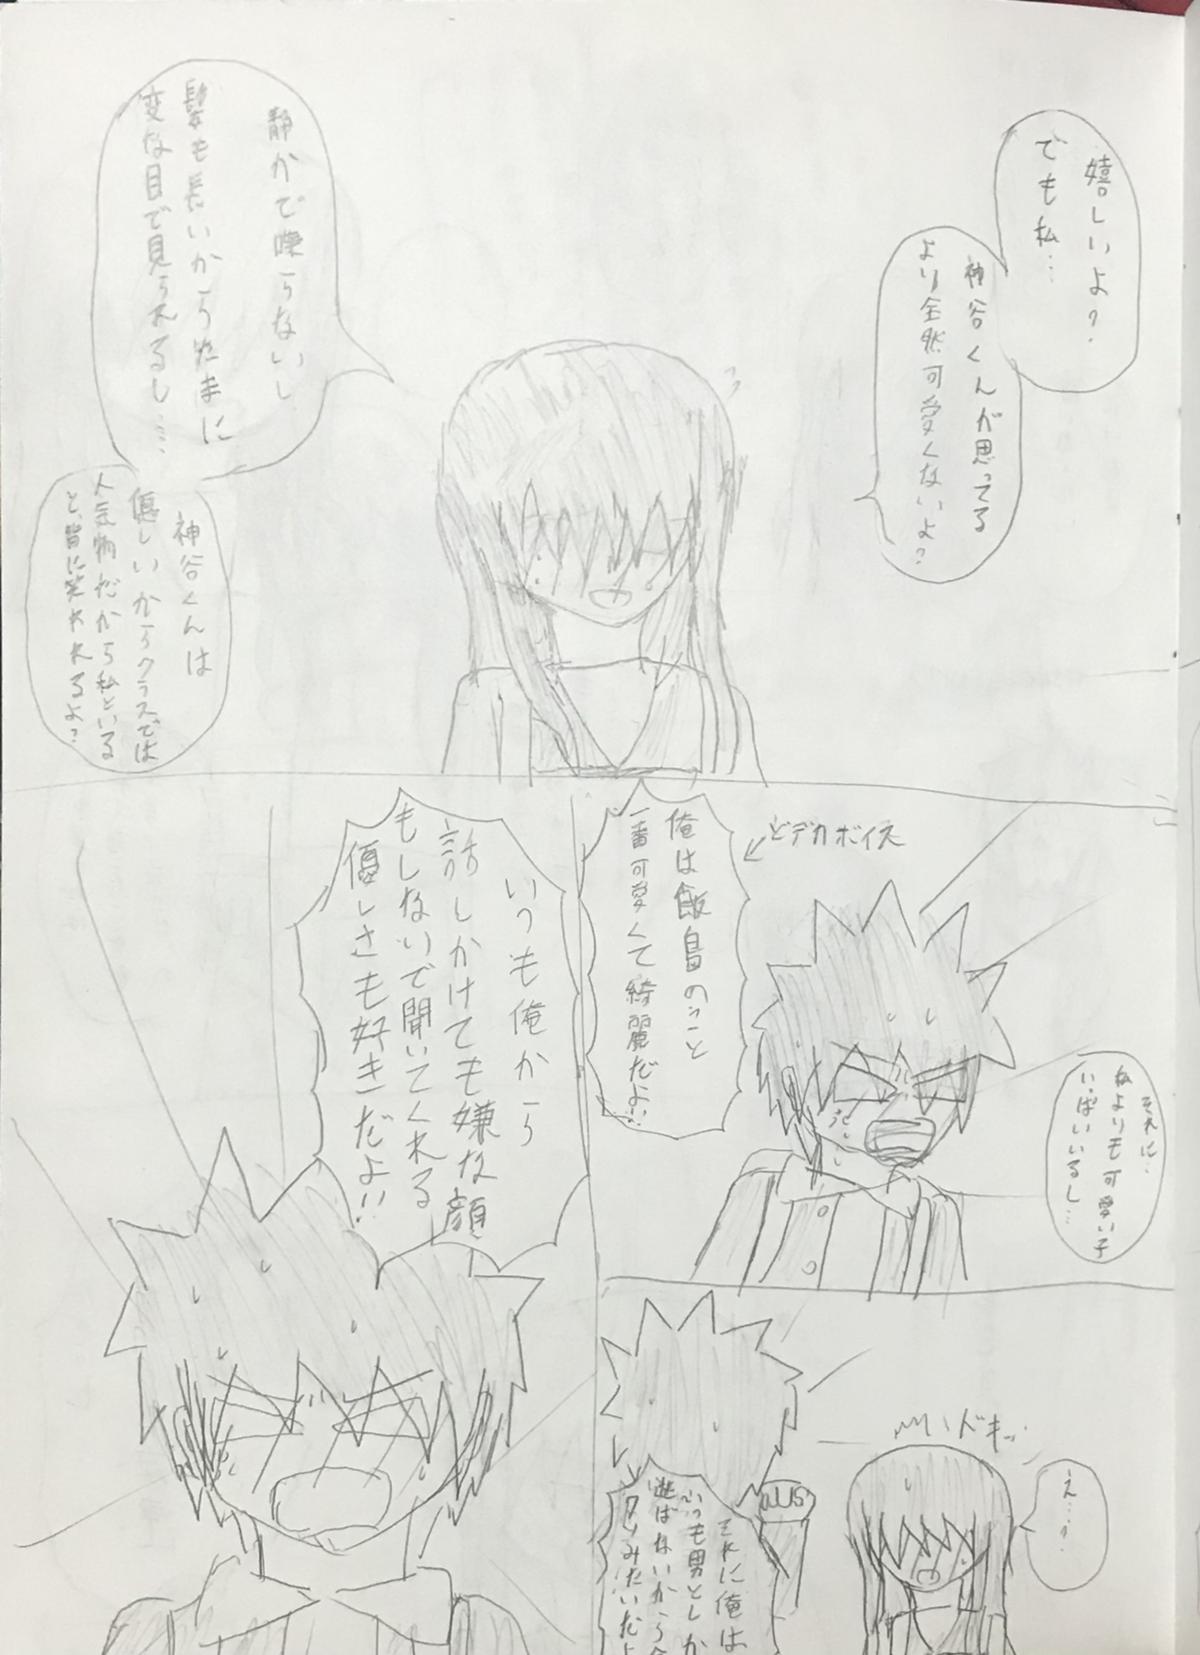 嬉しいよ?
でも私…
神谷くんが思ってる
より全然可愛くないよ?
静かで喋らないし
髪も長いからたまに
変な目で見られるし…
神谷くんは
優しいからクラスでは
人気物だから私といる
と、皆に笑われるよ?
それに…
私よりも可愛い子
いっぱいいるし…
どデカボイス
俺は飯島のこと
一番可愛くて綺麗だよ!!
え…?
ドキッ
それに俺は
いつも男としか
遊ばないから
みたいだよ
いつも俺から
話しかけても嫌な顔
もしないで聞いてくれる
優しさも好きだよ!!